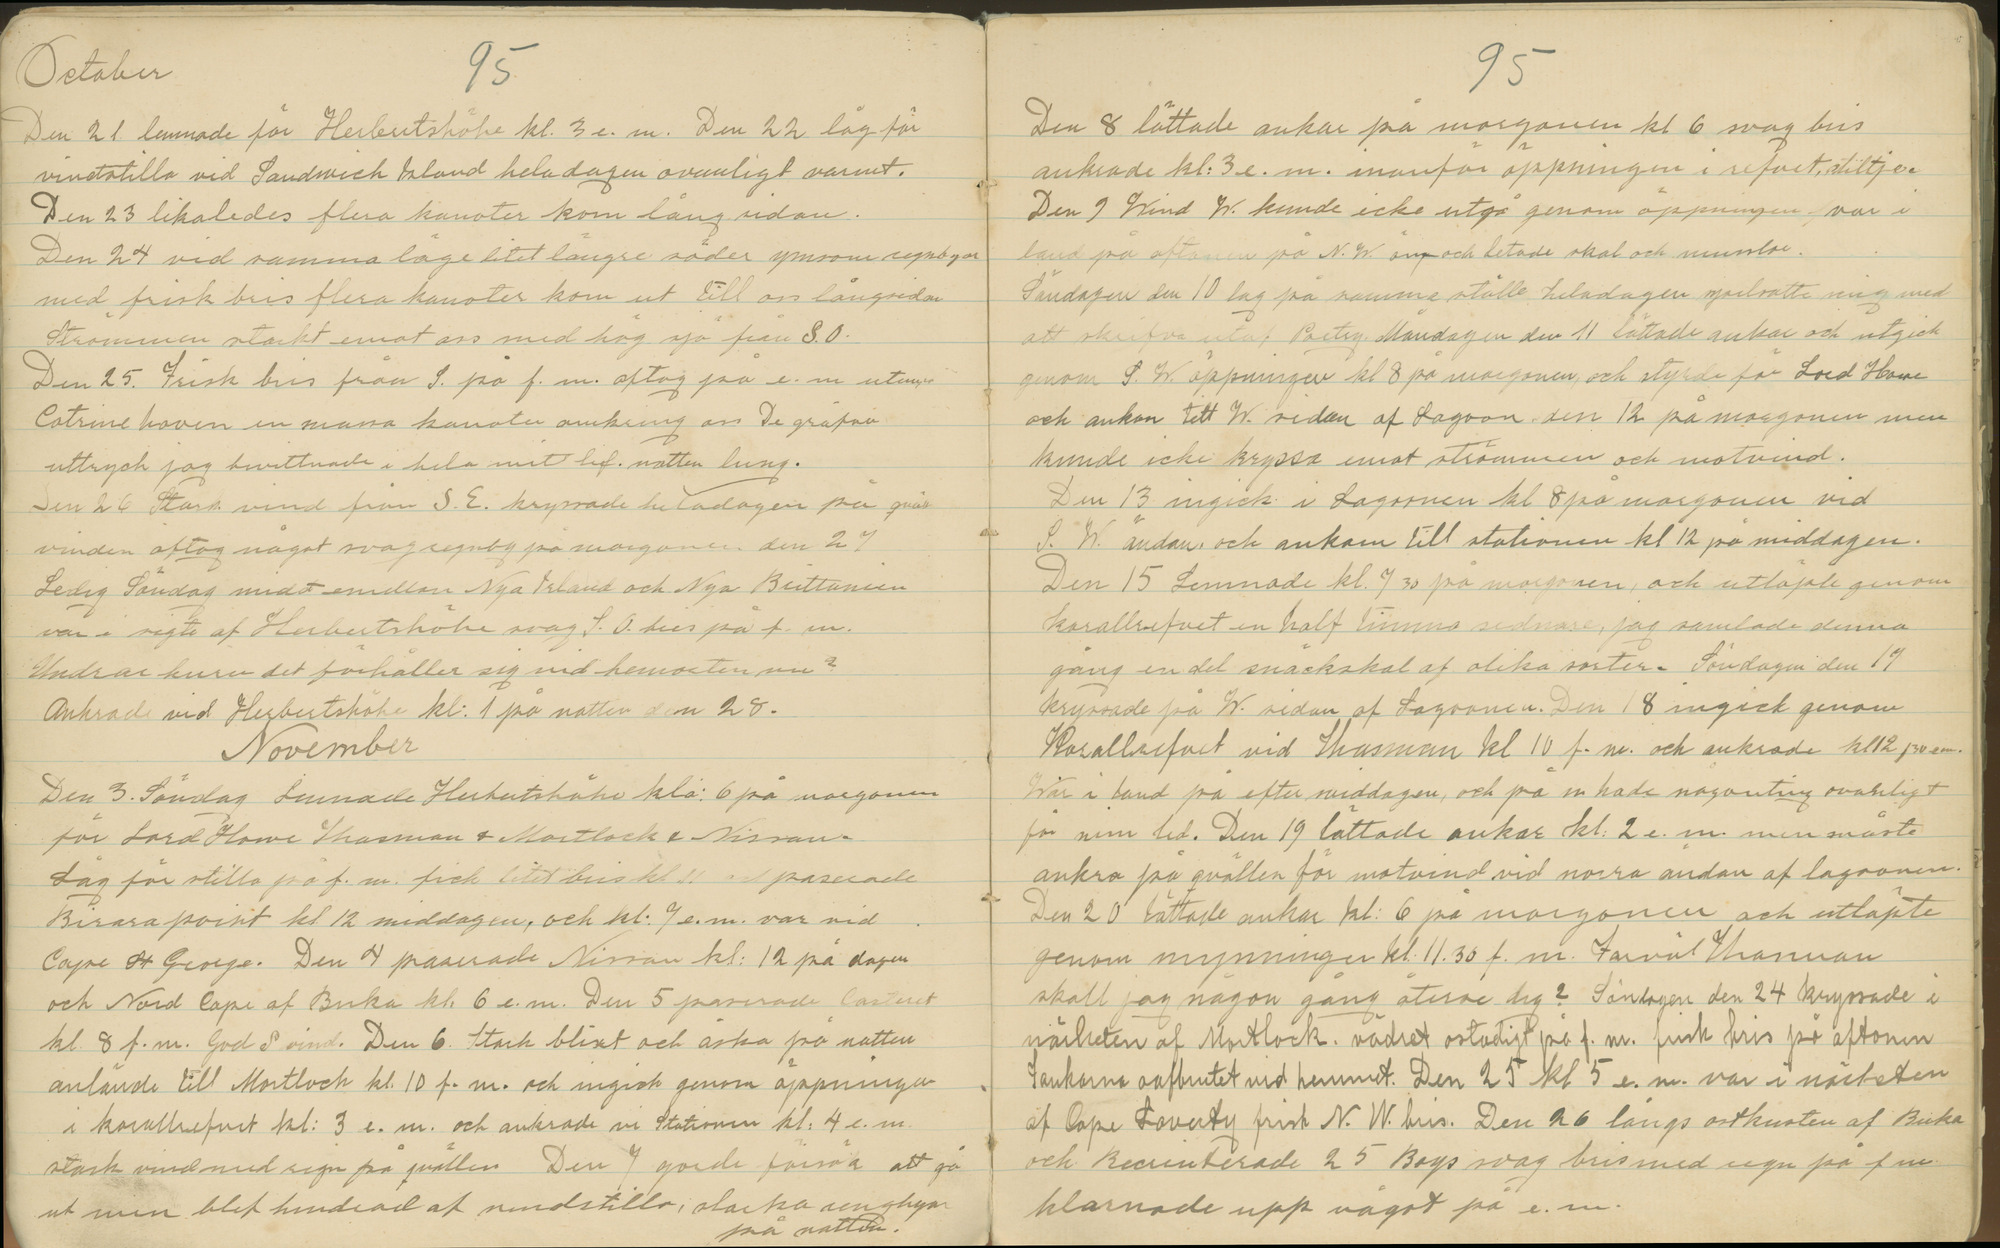 October 95
Den 21 lemnade för Herbertshöhe kl. 3 e. m. Den 22 låg för
vindstilla vid Sandwich Island heladagen ovanligt varmt.
Den 23 likaledes flera kanoter kom lång sidan.
Den 24 vid samma läge litet längre söder ymsom regnbyar
med frisk bris flera kanoter kom ut till oss långsidan
Strömmen starkt emot oss med hög sjö från S.O.
Den 25. Frisk bris från S. på f. m. aftog på e. m
Catrine haven en massa kanoter omkring oss De
uttryck jag bevittnade i hela mitt lif. natten lung.
Den 26 Stark vind från S. E. kryssade heladagen på
vinden aftog något svag regnby på morgonen den 27
Ledig Söndag midt emellan Nya Irland och Nya Brittanien
var i sigte af Herbertshöhe svag S. O. bris på f. m.
Undrar huru det förhåller sig vid hemorten nu?
Ankrade vid Herbertshöhe kl: 1 på natten den 28.
November
Den 3. Söndag Lemnade Herbertshöhe klo: 6 på morgonen
för Lord Howe Thasman & Mortlock & Nissan.
Låg för stilla på f. m. fick litet bris kl 11 paserade
Birara point kl 12 middagen, och kl: 7 e. m. var vid
Cape St George. Den 4 paserade Nissan kl: 12 på dagen
och Nord Cape af Buka kl. 6 e. m. Den 5 paserade Carteret
kl. 8 f. m. God S vind. Den 6. Stark blixt och åska på natten
anlände till Mortlock kl. 10 f. m. och ingick genom öppningen
i korallrefvet kl: 3 e. m. och ankrade vi Stationen kl: 4 e. m.
stark vind med regn på qvällen Den 7 gorde försök att gå
ut men blef hindrad af vindstilla, starka
på natten.
95
Den 8 lättade ankar på morgonen kl 6 svag bris
ankrade kl: 3 e. m. inanför öppningen i refvet, stiltje.
Den 9 Wind W. kunde icke utgå genom öppningen var i
land på aftonen på N. W. ön och letade skal och musslor.
Söndagen den 10 låg på samma ställe heladagen med
att skrifva Poetry. Måndagen den 11 lättade ankar och utgick
genom S. W. öppningen kl 8 på morgonen, och styrde för Lord Howe
och ankom till W. sidan af Lagoon. den 12 på morgonen men
kunde icke kryssa emot strömmen och motvind.
Den 13 ingick i Lagoonen kl 8 på morgonen vid
S. W. ändan, och ankom till stationen kl 12 på middagen.
Den 15 Lemnade kl. 7 30 på morgonen, och utlöpte genom
korallrefvet en half timma sednare, jag samlade denna
gång en del snäckskal af olika sorter. Söndagen den 17
kryssade på W. sidan af Lagoonen. Den 18 ingick genom
Korallrefvet vid Thasman kl 10 f. m. och ankrade kl 12,30 em.
War i land på efter middagen, och på hade någonting ovanligt
för min led. Den 19 lättade ankar kl: 2 e. m. men måste
ankra på qvällen för motvind vid norra ändan af lagoonen.
Den 20 lättade ankar kl: 6 på morgonen och utlöpte
genom mynningen kl. 11.30 f. m. Farväl Thasman
skall jag någon gång återse dig? Söndagen den 24 kryssade i
närheten af Mortlock. vädret ostadigt på f. m. frisk bris på aftonen
Tankarna oafbrutet vid hemmet. Den 25 kl 5 e. m. var i närheten
af Cape Laverdy frisk N. W. bris. Den 26 långs ostkusten af Buka
och Recruiterade 25 Boys svag bris med regn på f m
klarnade upp något på e. m.